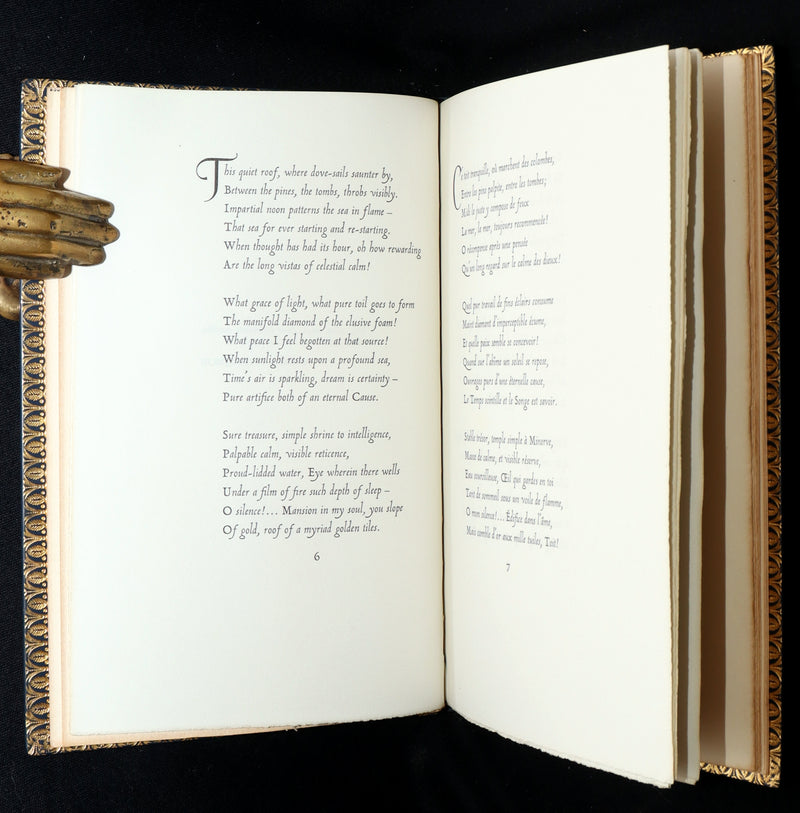 This quiet roof, where dove-sails saunter by,
Between the pines, the tombs, throbs visibly.
Impartial noon patterns the sea in flame –
That sea for ever starting and re-starting.
When thought has had its hour, oh how rewarding
Are the long vistas of celestial calm!
What grace of light, what pure toil goes to form
The manifold diamond of the elusive foam!
What peace I feel begotten at that source!
When sunlight rests upon a profound sea,
Time's air is sparkling, dream is certainty –
Pure artifice both of an eternal Cause.
Sure treasure, simple shrine to intelligence,
Palpable calm, visible reticence,
Proud-lidded water, Eye wherein there wells
Under a film of fire such depth of sleep –
O silence!... Mansion in my soul, you slope
Of gold, roof of a myriad golden tiles.
6
Ce toit tranquille, où marchent des colombes,
Entre les pins palpite, entre les tombes;
Midi le juste y compose de feux
La mer, la mer, toujours recommencée!
O récompense après une pensée
Qu'un long regard sur le calme des dieux!
Quel pur travail de fins éclairs consume
Maint diamant d'imperceptible écume,
Et quelle paix semble se concevoir!
Quand sur l'abîme un soleil se repose,
Ouvrages purs d'une éternelle cause,
Le Temps scintille et le Songe est savoir.
Stable trésor, temple simple à Minerve,
Masse de calme, et visible réserve,
Eau sourcilleuse, Œil qui gardes en toi
Tant de sommeil sous un voile de flamme,
O mon silence!... Édifice dans l'âme,
Mais comble d'or aux mille tuiles, Toit!
7